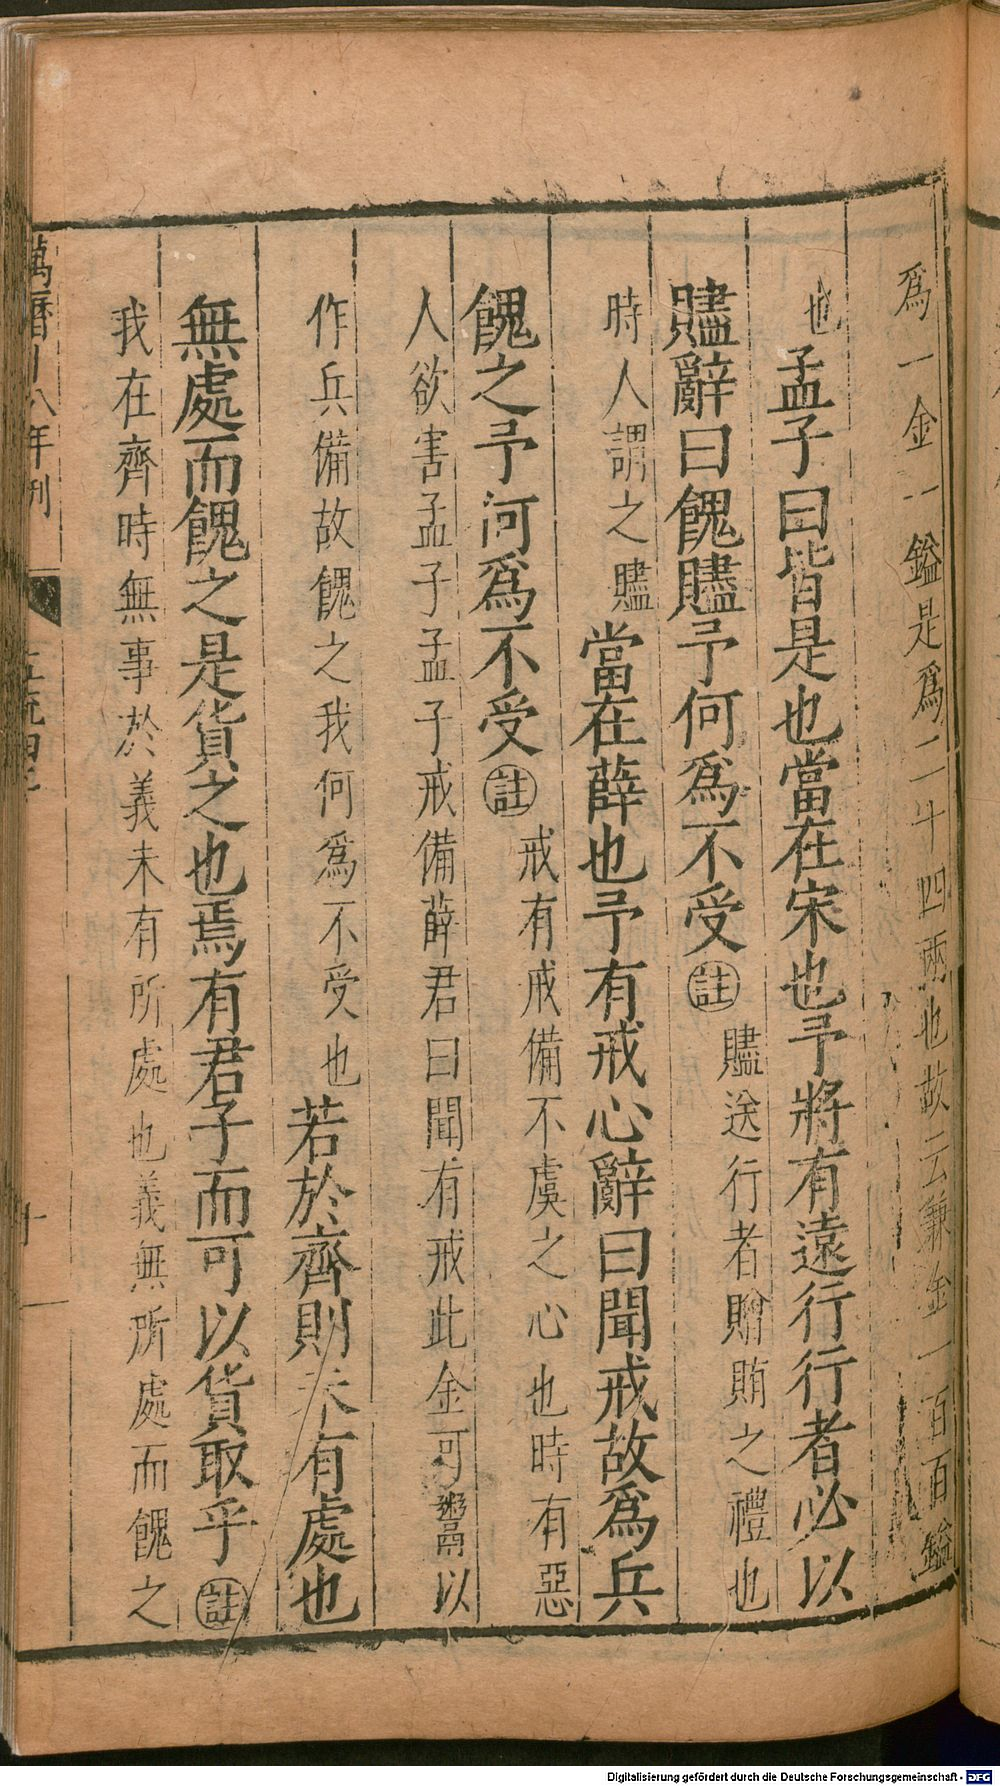 爲一金一鎰是爲二十四兩也故云兼金一百百鎰
也孟子曰皆是也當在宋也予將有遠行行者必以
贐辭曰餽贐予何爲不受註贐送行者贈賄之禮也
時人謂之贐當在薛也予有戒心辭曰聞戒故爲兵
餽之予何爲不受註戒有戒備不虞之心也時有惡
人欲害孟子孟子戒備薛君曰聞有戒此金可鬻以
作兵備故餽之我何爲不受也若於齊則未有處也
無處而餽之是貨之也焉有君子而可以貨取乎註
我在齊時無事於義未有所處也義無所處而餽之
萬曆 八年刊
Digitalisierung gefördert durch die Deutsche Forschungsgemeinschaft - DFG